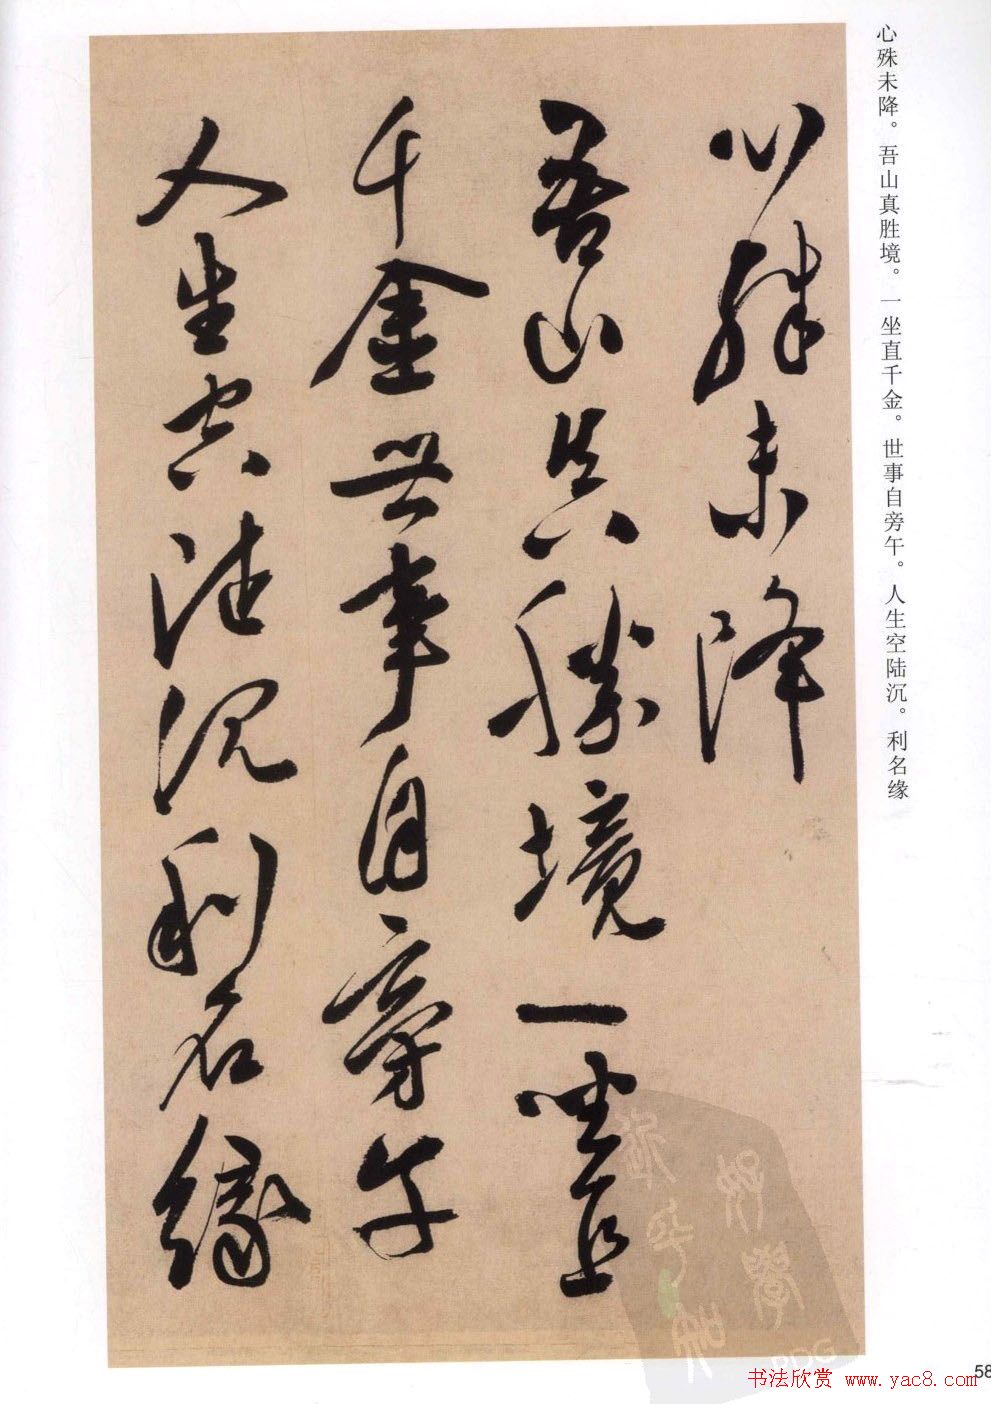 心殊未降。吾山真胜境。一坐直千金。世事自旁午。人生空陆沉。利名缘
心殊未降
吾山真勝境一坐直
千金世事自旁午
人生空陸沉利名緣
58
PDG
书法欣赏 www.yac8.com